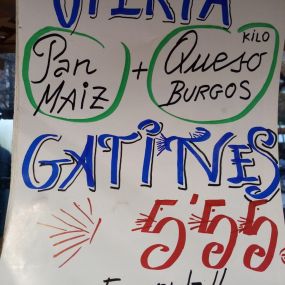 OFERTA
KILO
Pan + Queso
MAIZ BURGOS
GATINES
5'55